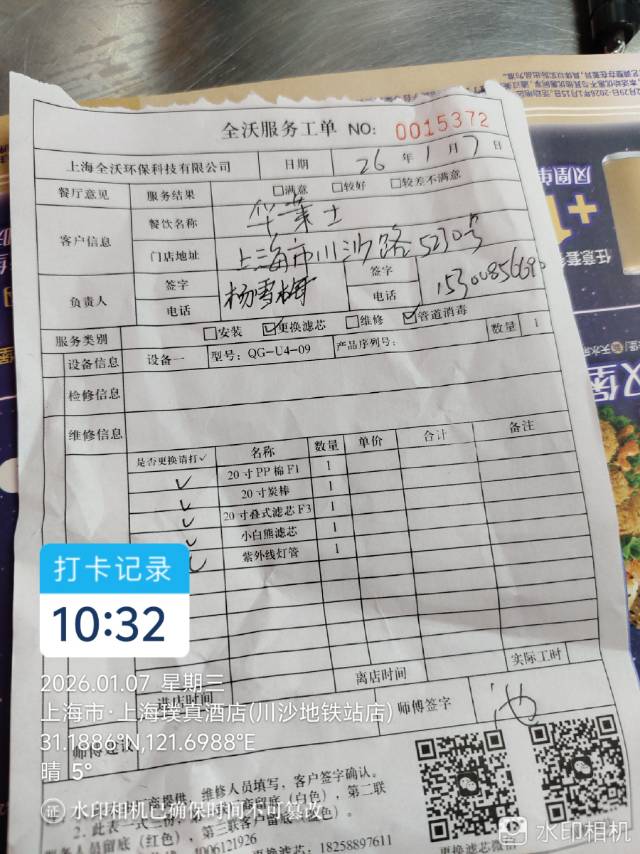 全沃服务工单 NO: 0015372
上海全沃环保科技有限公司 日期 26 年 1 月 7 日
餐厅意见 服务结果 □满意 □较好 □较差不满意
客户信息 餐饮名称 华莱士
门店地址 上海市川沙路5230号
负责人 签字 杨雪梅 签字
电话 电话
服务类别 □安装 ☑更换滤芯 □维修 ☑管道消毒
设备信息 设备一 型号: QG-U4-09 产品序列号: 数量 1
检修信息
维修信息
是否更换请打✓ 名称 数量 单价 合计 备注
✓ 20寸PP棉F1 1
✓ 20寸炭棒 1
✓ 20寸叠式滤芯F3 1
✓ 小白熊滤芯 1
✓ 紫外线灯管 1
进店时间 离店时间 实际工时
师傅建议 师傅签字
维修人员填写，客户签字确认。
2. 此表一式三
(白色)，第二联
(红色)，第三联客户留底
更换滤芯 18258897611
更换滤芯微信
打卡记录
10:32
2026.01.07 星期三
上海市·上海璞真酒店(川沙地铁站店)
31.1886°N,121.6988°E
晴 5°
证 水印相机已确保时间不可篡改
水印相机